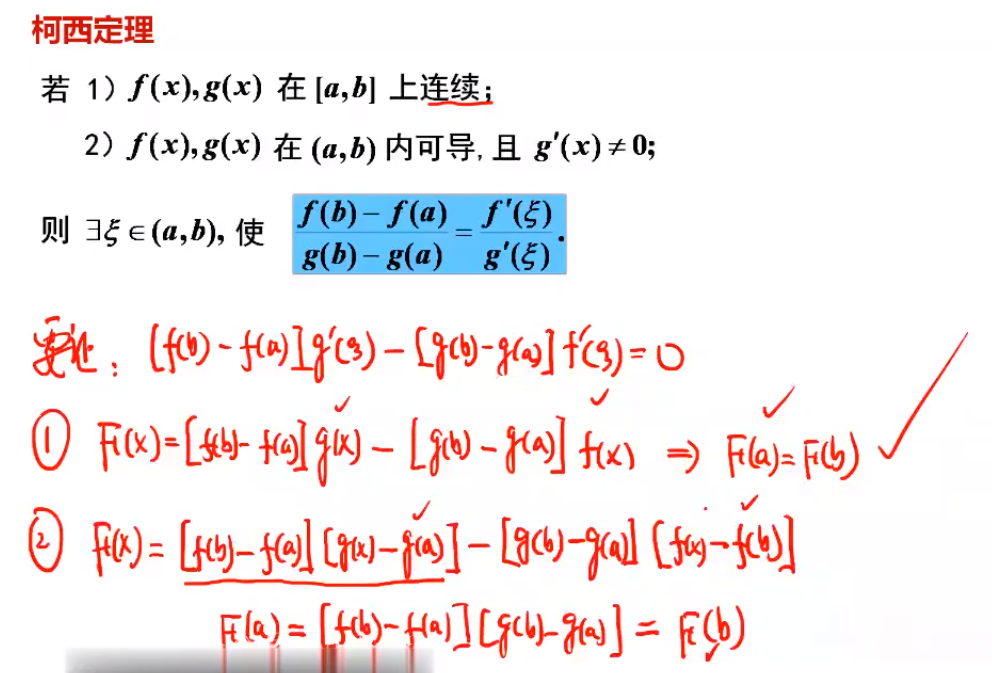 柯西定理
若 1) f(x),g(x) 在 [a,b] 上连续;
2) f(x),g(x) 在 (a,b) 内可导,且 g′(x)≠0;
则 ∃ξ∈(a,b), 使 \frac{f(b)-f(a)}{g(b)-g(a)}=\frac{f'(ξ)}{g'(ξ)}.
要证: [f(b)-f(a)]g′(ξ)-[g(b)-g(a)]f′(ξ)=0
① F(x)=[f(b)-f(a)]g(x)-[g(b)-g(a)]f(x) ⇒ F(a)=F(b)
② F(x)=[f(b)-f(a)][g(x)-g(a)]-[g(b)-g(a)][f(x)-f(b)]
F(a)=[f(b)-f(a)][g(b)-g(a)]=F(b)